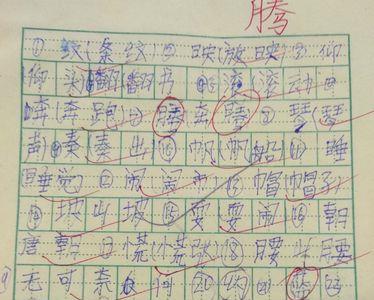 腾
①纹(条纹)②映(放映)③仰
仰头 翻 翻书 ④滚(滚动)
奔(奔跑) 腾 奔腾 ⑧琴(琴
声 奏(奏出)⑩帆(帆船)⑪睡
睡觉 ⑫闹 闹市 ⑬帽(帽子)
⑭坡 山坡 ⑮耍 耍闹 ⑯朝
唐朝 ⑰慌 慌张 ⑱腰 山腰
无可奈何 ⑳